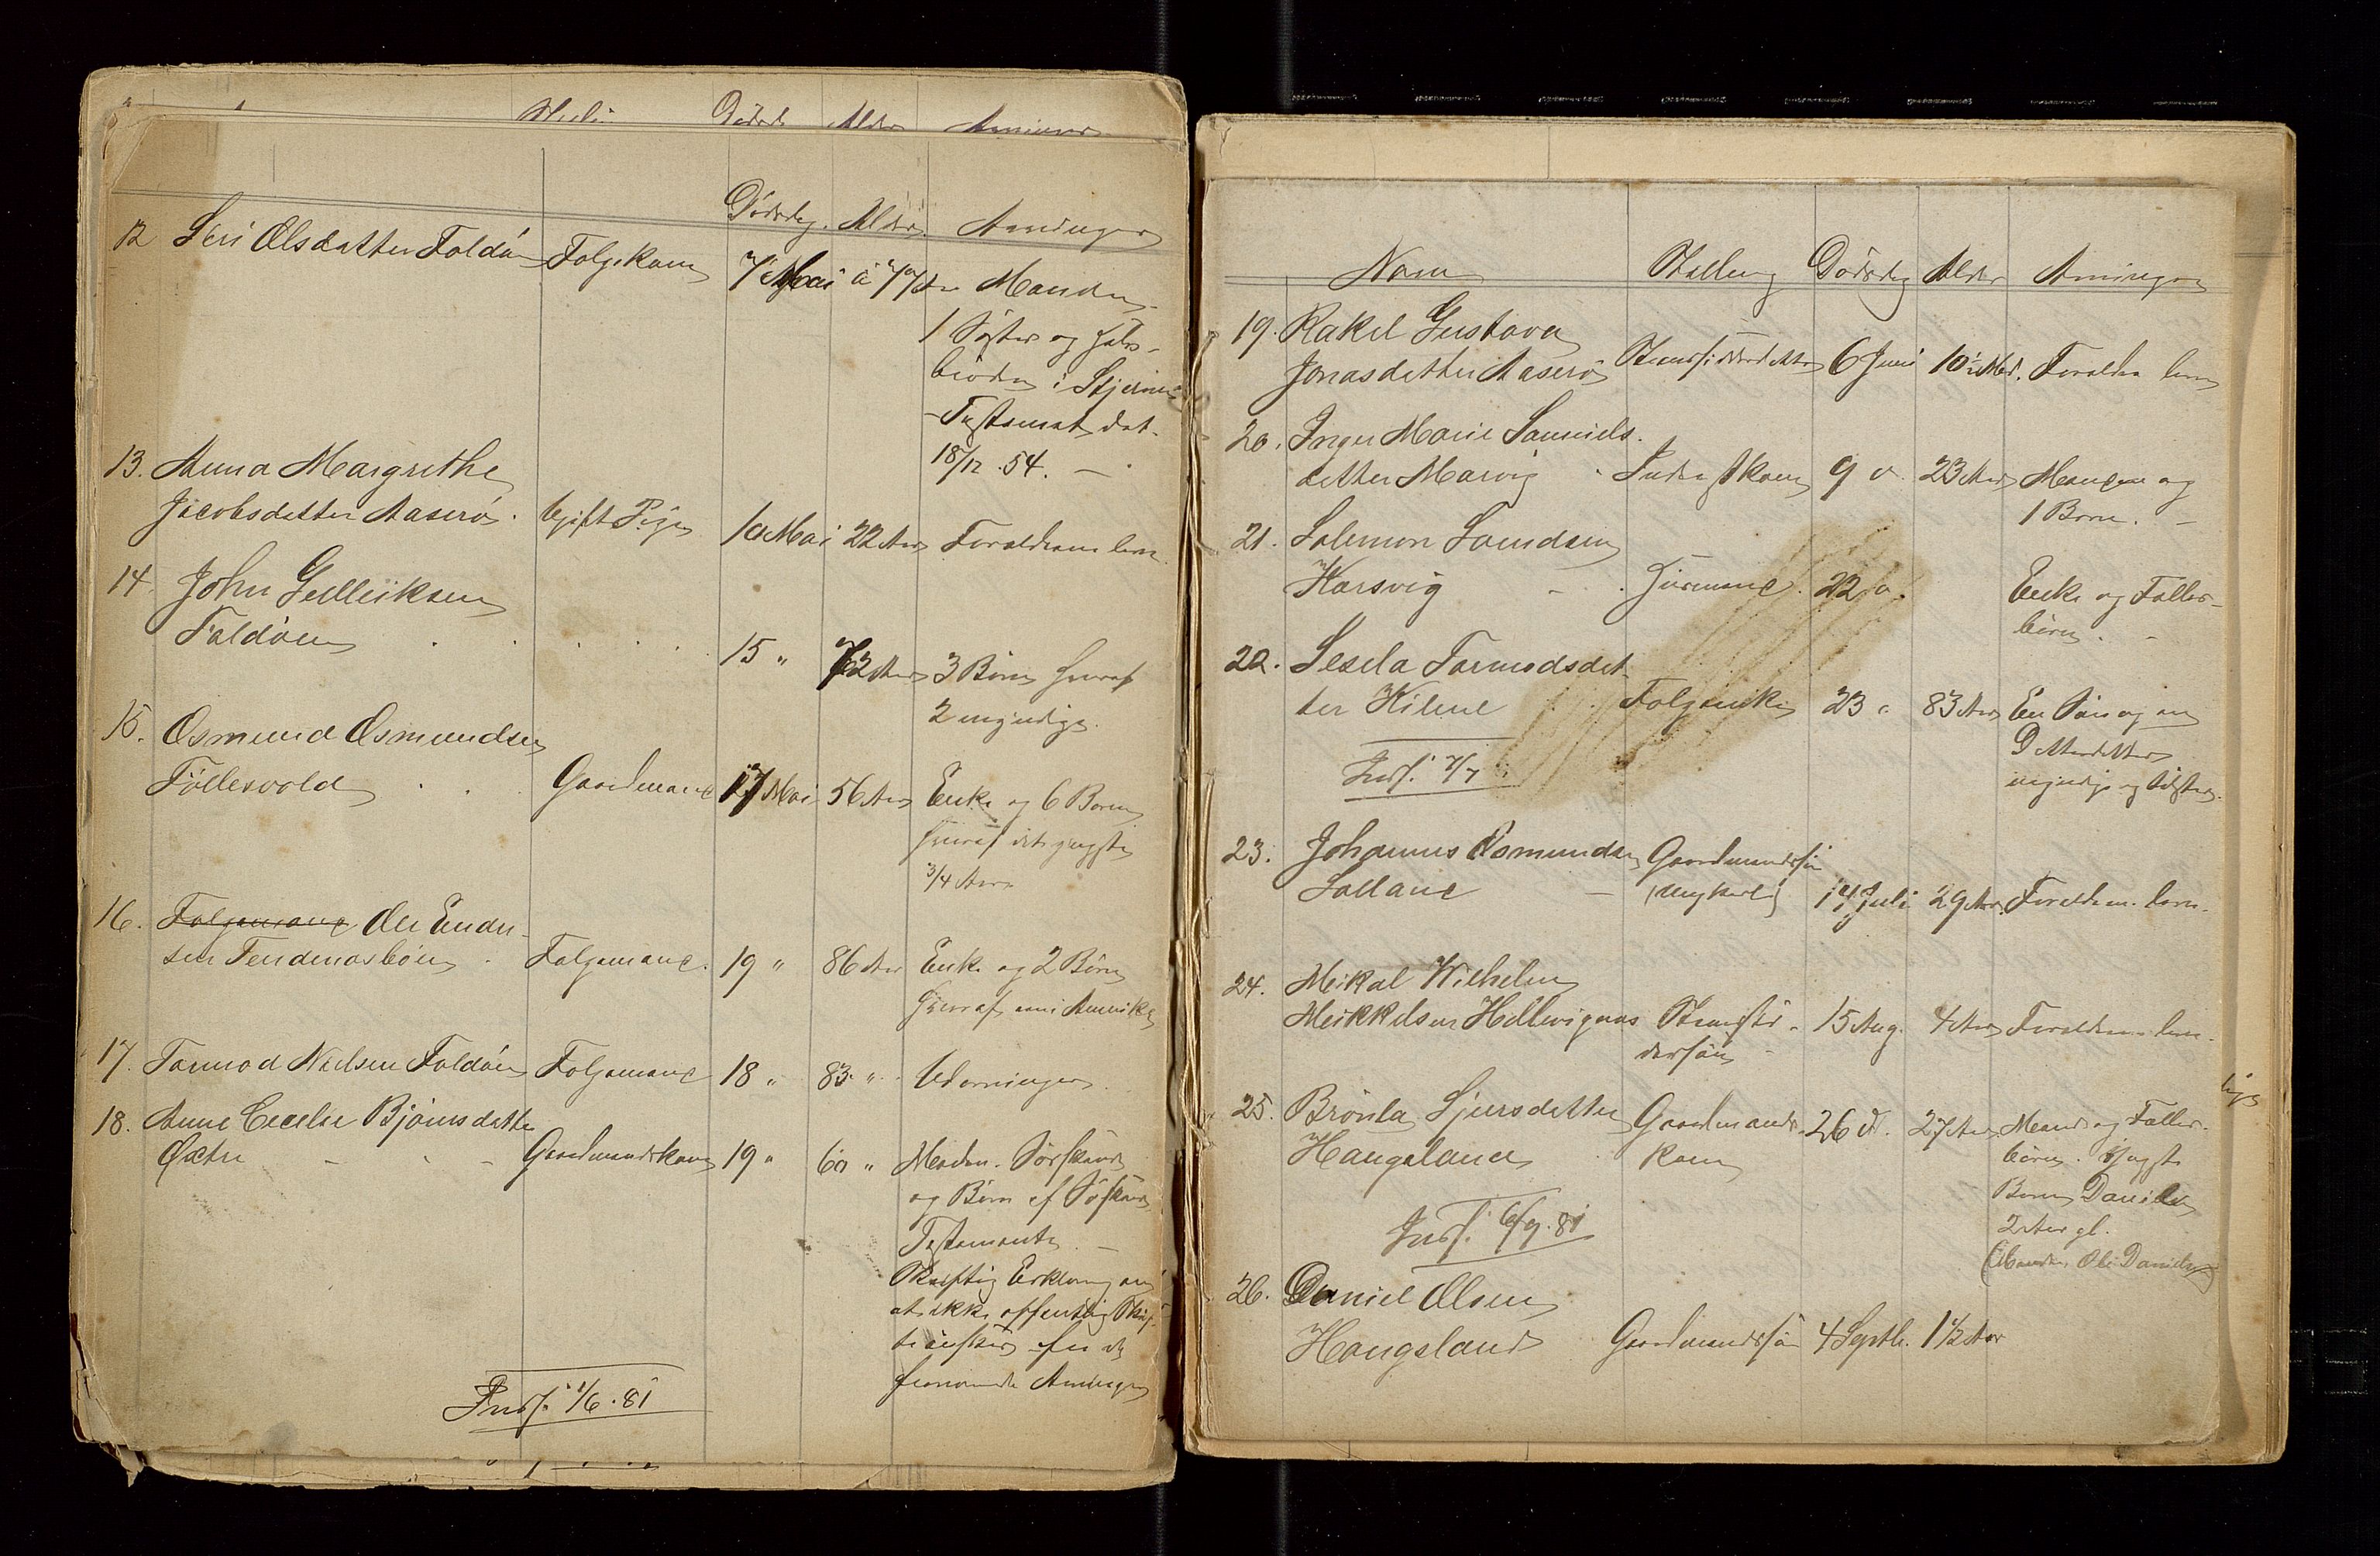 Dødsdag. Alder. Arvinger
12 Siri Olsdatter Foldøen Folgekone 7 Mai a 77 Aar Manden
1 Søster og Halv-
brødre i Stjerne
- Testament dat.
18/12 .54. -
13. Anna Margrethe
Jacobsdatter Aaserø. Ugift Pige 10 Mai 22 Aar Forældrene leve
14. John Gulleiksen
Foldøen 15 " 72 Aar 3 Børn hvoraf
2 myndige.
15. Osmund Osmundsen
Føllesvold Gaardmand 17 Mai 56 Aar Enke og 6 Børn
hvoraf det yngste
3/4 Aar
16. Folgemand Ole Ender
sen Tendenes Folgemand. 19 " 86 Aar Enke og 2 Børn
hvoraf en i Amerika
17. Tormod Nielsen Foldøen Folgemand 18 " 83. " Udarvinger.
18. Anne Cecelie Bjørnsdatter
Øxtre - - Gaardmandskone 19 " 60 " Manden. Sødskende
og Børn af Sødskende
Testamente. -
Skriftlig Erklæring om
at ikke offentlig Skif-
te ønskes fra de
fraværende Arvinger
Inds. 1/6.81
Navn Stilling Dødsdag Alder Arvinger
19. Rakel Gustava
Jonasdatter Aaserø Strandsidderdatter 6 Juni 10 Md. Forældre leve
20. Inger Marie Samuels.
datter Marvig Inderstkone 9 " 23 Aar Manden og
1 Barn. -
21. Salemon
Karsvig - Huusmand. 22 " Enke og Fælles-
børn. -
22. Sesela Tormodsdat-
ter Kilene Folgeenke 23 " 83 Aar En Søn og en
Datterdatter
myndige og tilstede.
Inds. 1/7
23. Johannes Osmundsen Gaardmandssøn
Lolland - (Ungkarl) 17 Juli 29 Aar. Forældrene leve.
24. Meikal Wilhelm
Meikkelsen Hellevignes Strandsid- 15 Aug. 4 Aar Forældrene leve.
dersøn -
25. Brønla Sjursdatter Gaardmands- 26 d. 27 Aar Mand og Fælles-
Haugeland kone børn. Yngste
Barn Daniel
2 Aar gl.
(Manden Ole Danielsen)
Inds. 6/9.81
26. Daniel Olsen
Haugeland Gaardmandssøn 4 Septb. 1 1/2 Aar